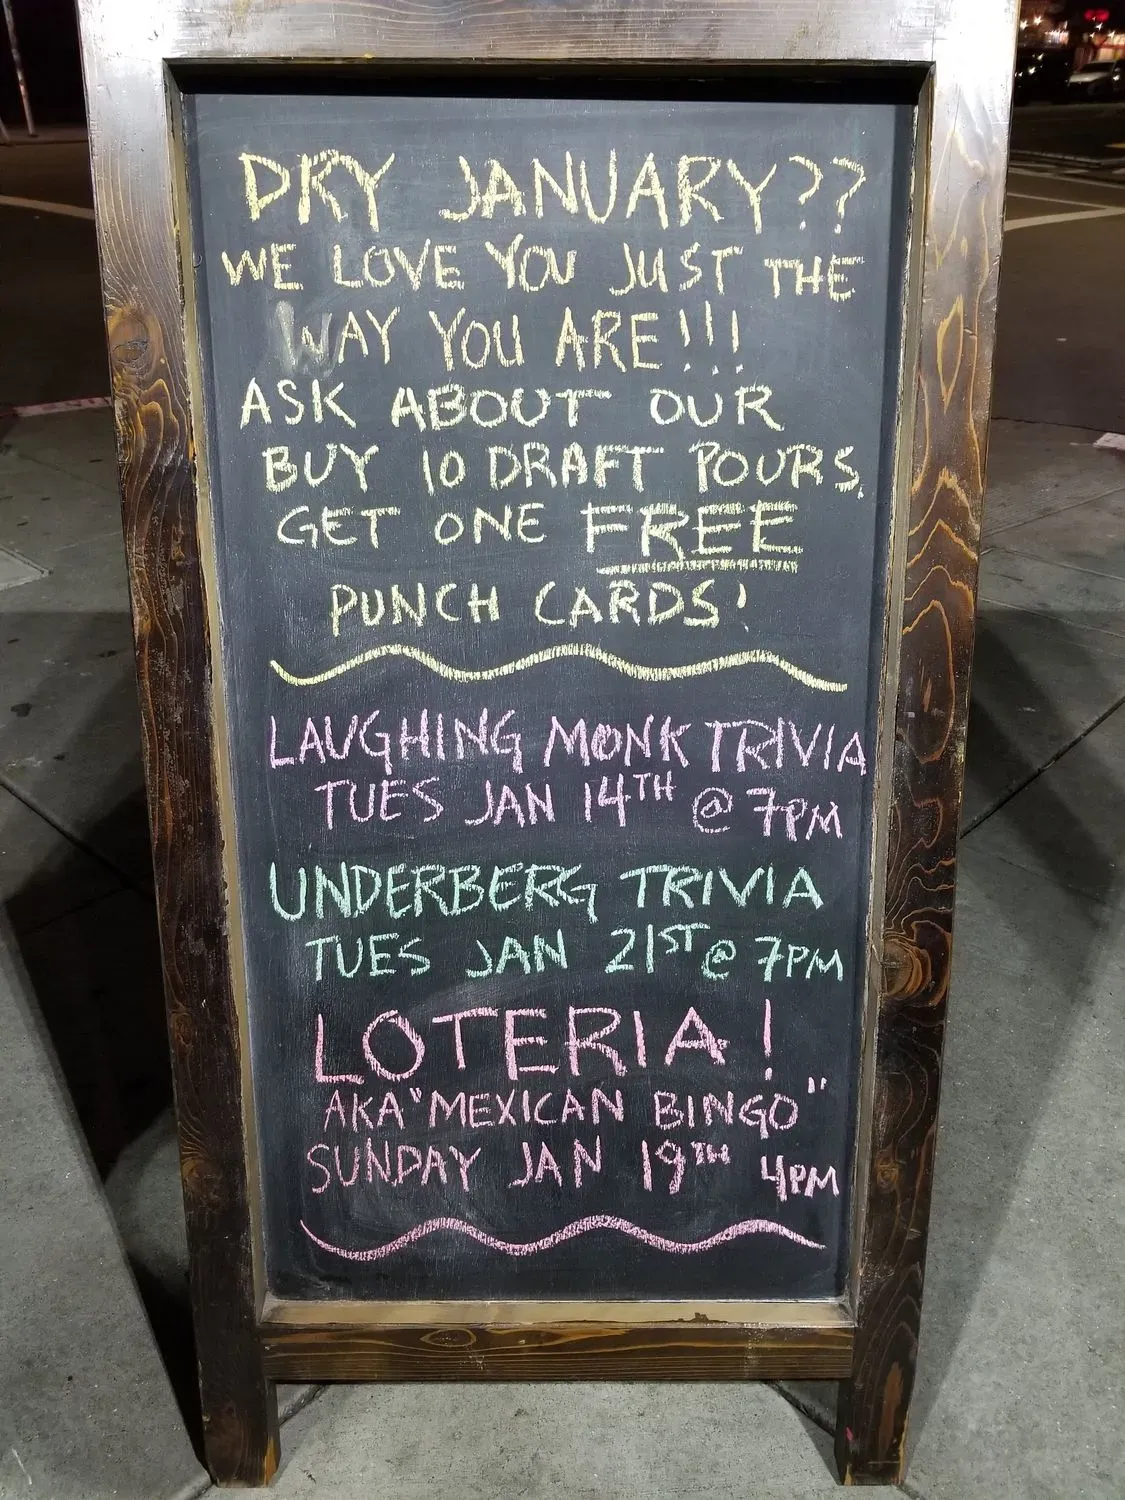 DRY JANUARY??
WE LOVE YOU JUST THE
WAY YOU ARE!!!
ASK ABOUT OUR
BUY 10 DRAFT POURS,
GET ONE FREE
PUNCH CARDS!
LAUGHING MONK TRIVIA
TUES JAN 14TH @ 7PM
UNDERBERG TRIVIA
TUES JAN 21ST @ 7PM
LOTERIA!
AKA "MEXICAN BINGO"
SUNDAY JAN 19TH 4PM